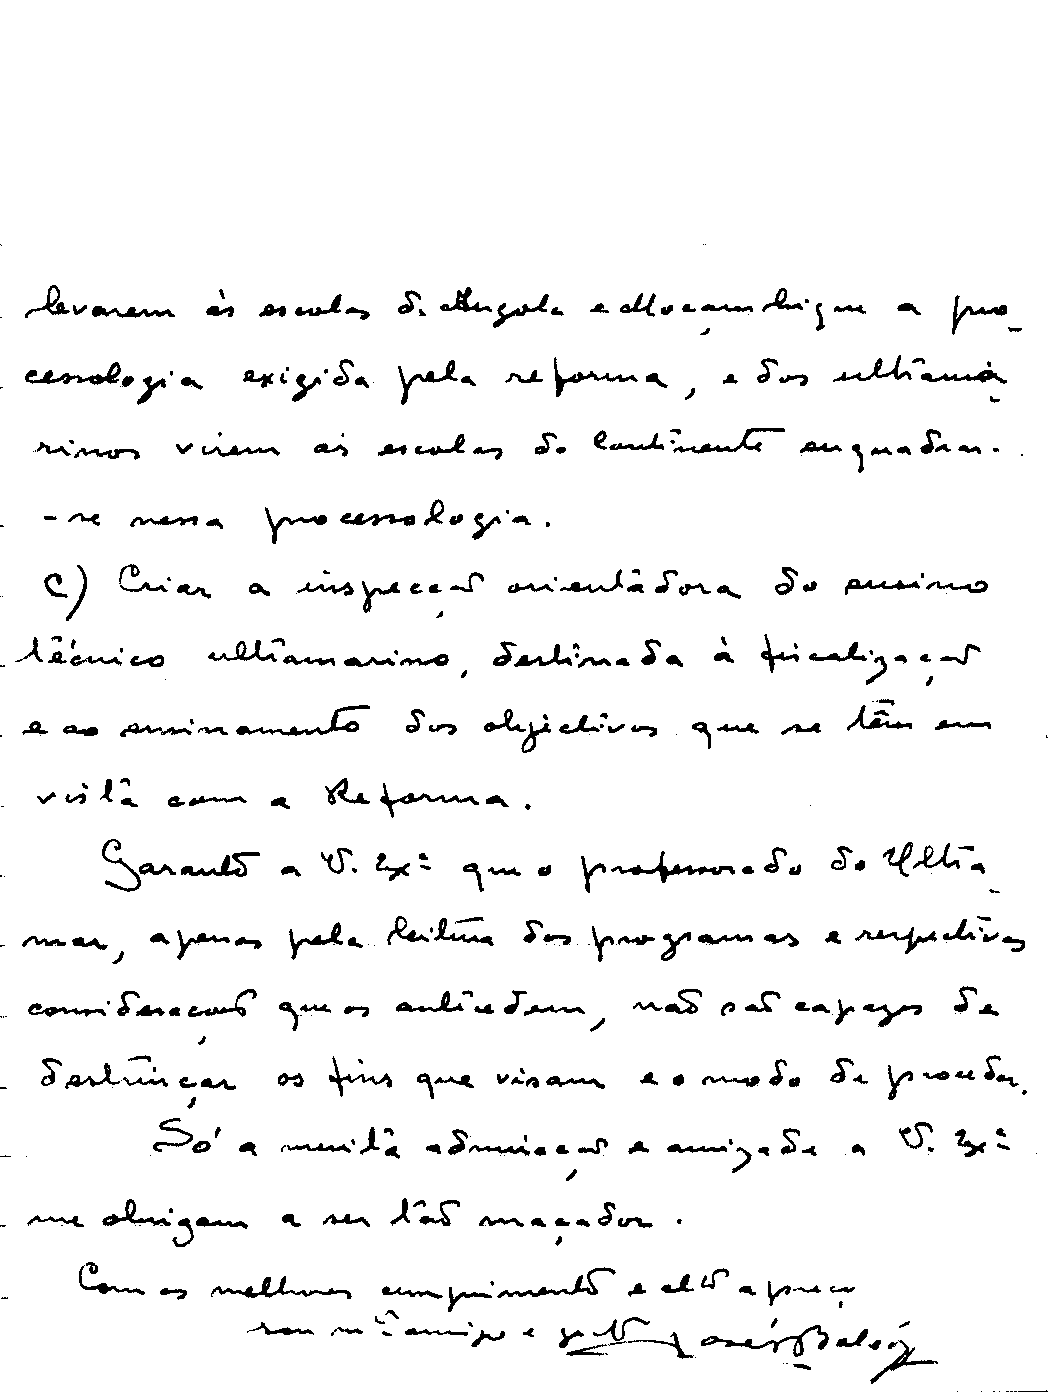 levarem às escolas de Angola e Moçambique a pro-
cessologia exigida pela reforma, e dos ultrama-
rinos virem às escolas do Continente enquadrar-
-se nessa processologia.
c) Criar a inspecção orientadora do ensino
técnico ultramarino, destinada à fiscalização
e ao ensinamento dos objectivos que se têm em
vista com a Reforma.
Garanto a V. Exª que o professorado do Ultra-
mar, apenas pela leitura dos programas e respectivas
considerações que os antecedem, não são capazes de
destrinçar os fins que visam e o modo de proceder.
Só a muita admiração e amizade a V. Exª
me obrigam a ser tão maçador.
Com os melhores cumprimentos e alto apreço
sou mtº amigo e José